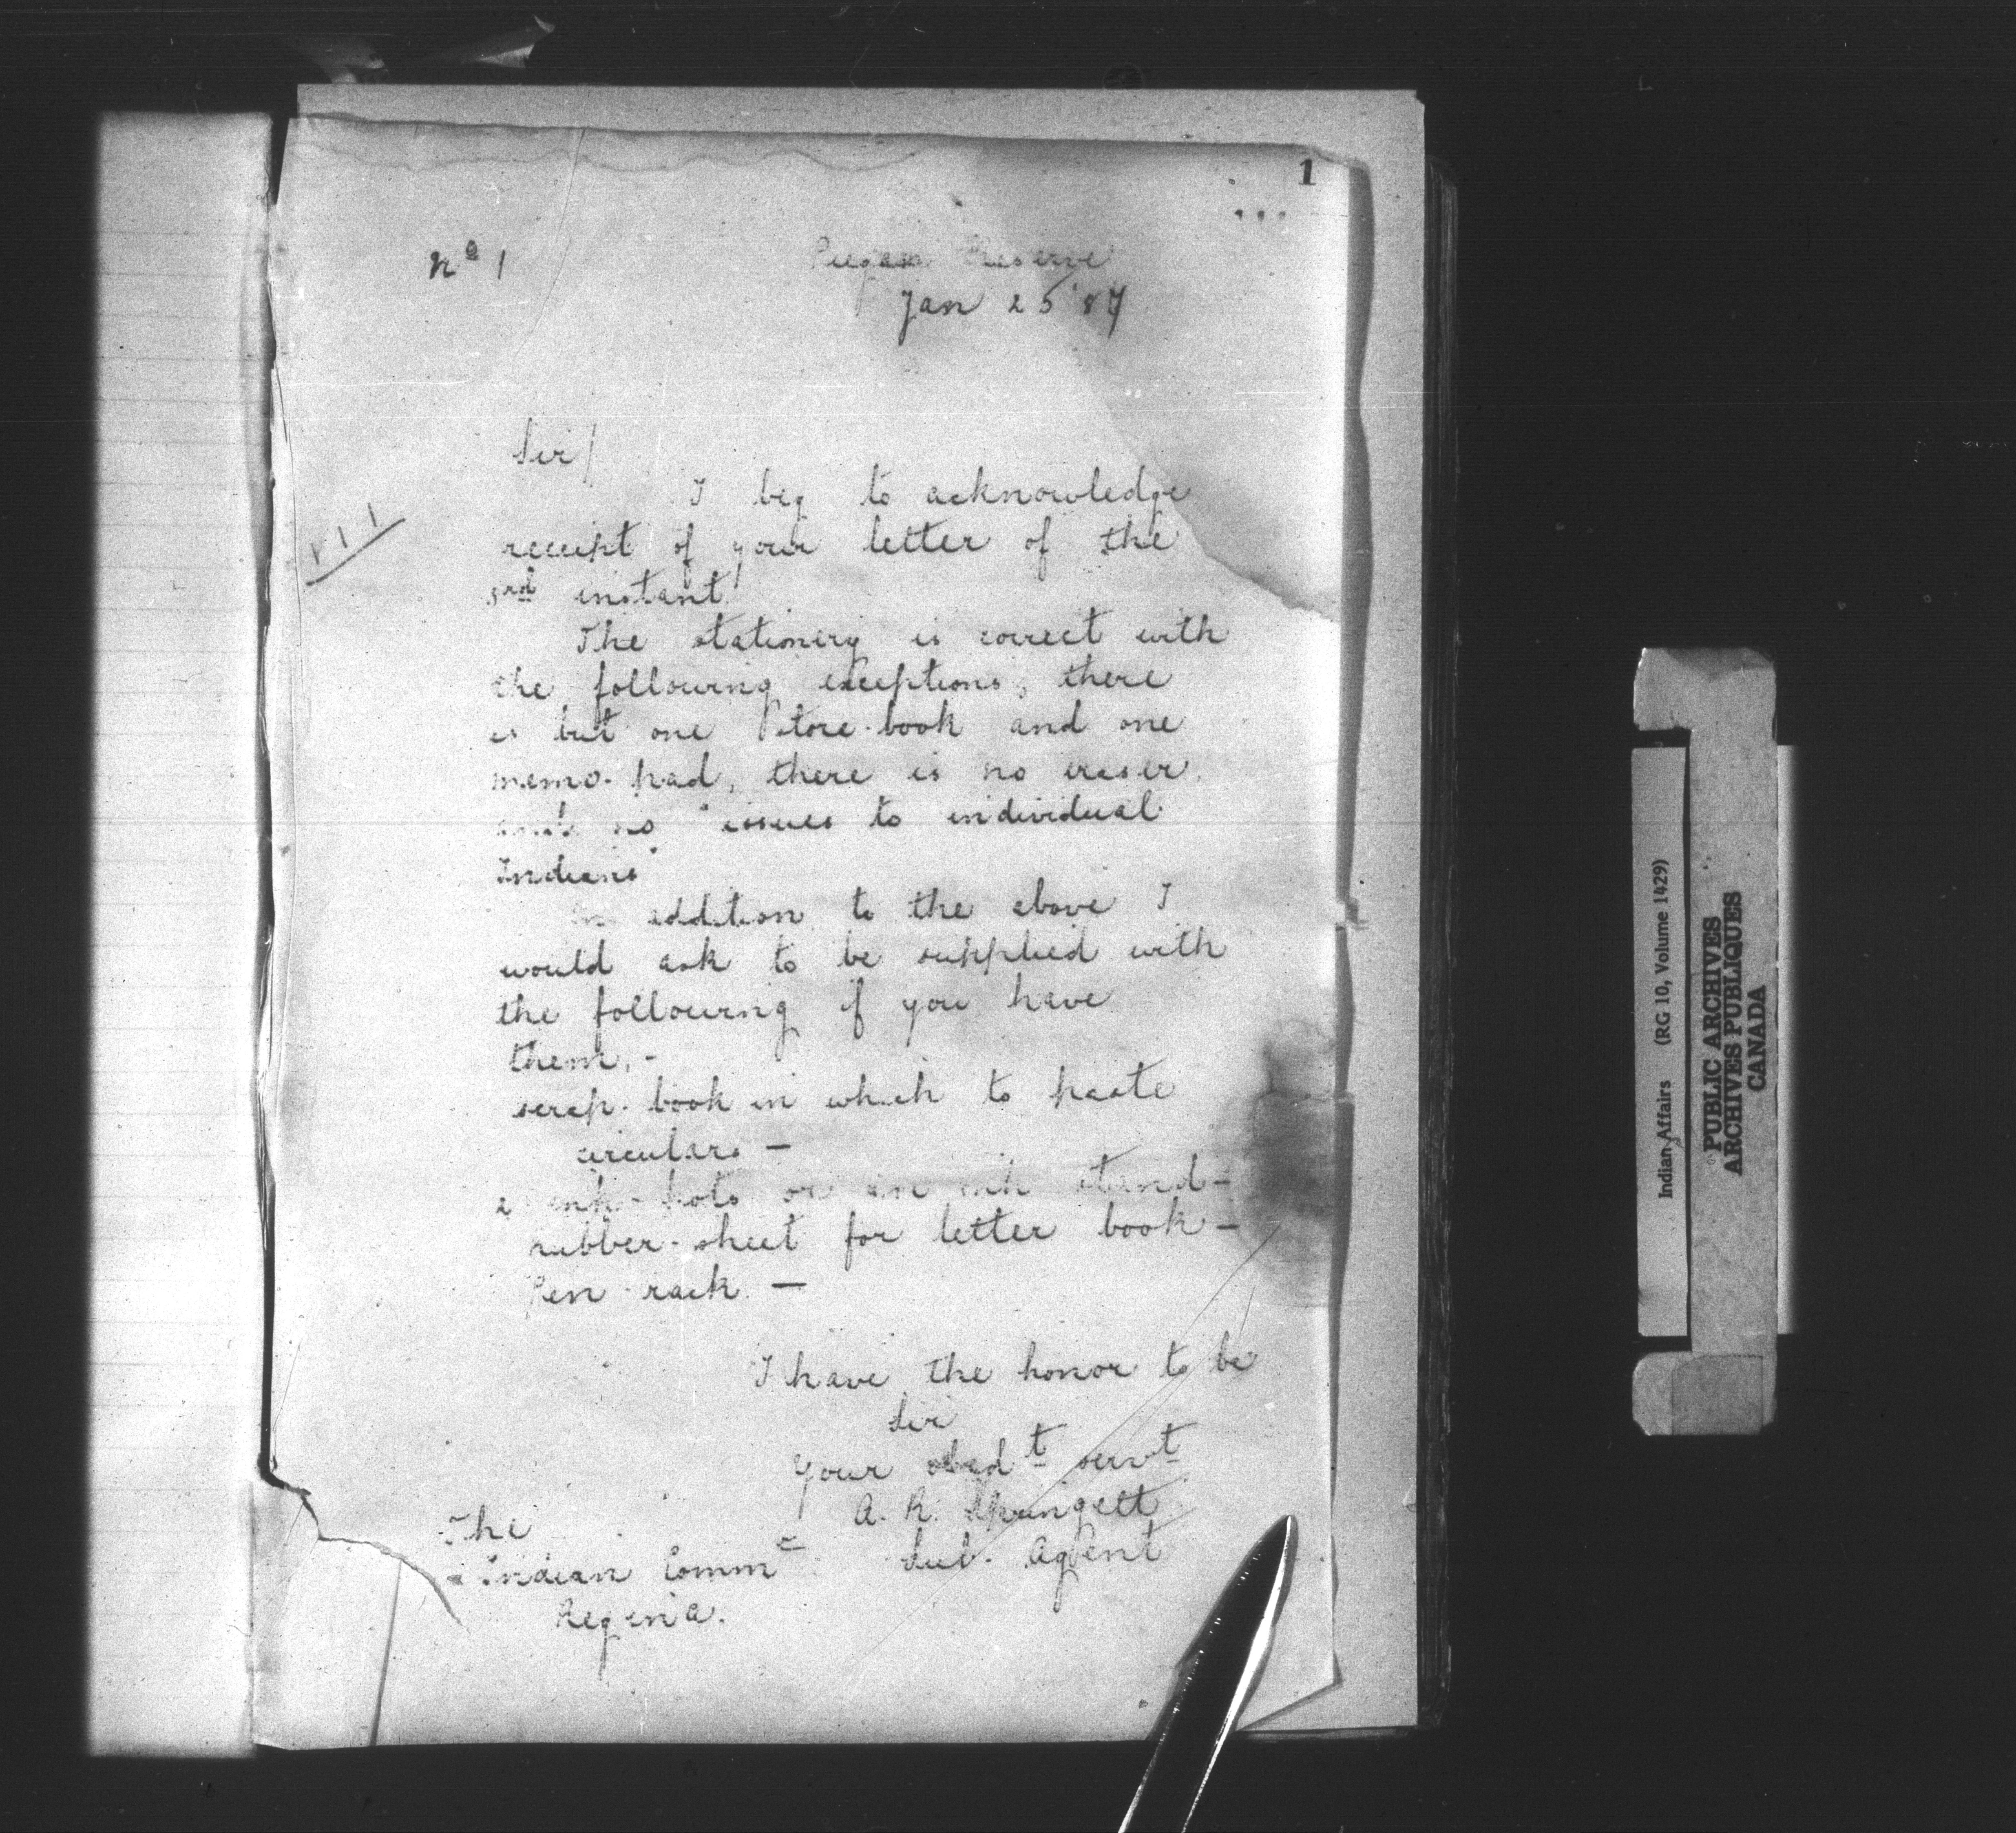 1
No 1
Piegan Reserve
Jan 25 '87
Sir/
I beg to acknowledge
receipt of your letter of the
3rd instant
The stationery is correct with
the following exceptions, there
is but one store-book and one
memo-pad, there is no eraser
and no "issues to individual
Indians"
In addition to the above I
would ask to be supplied with
the following if you have
them, -
scrap-book in which to paste
circulars -
2 ink-pots or an ink stand -
rubber-sheet for letter book -
Pen-rack. -
I have the honor to be
Sir
Your obedt servt
A. R. Springett
Sub. Agent
The
Indian Commr
Regina.
Indian Affairs (RG 10, Volume 1429)
PUBLIC ARCHIVES
ARCHIVES PUBLIQUES
CANADA